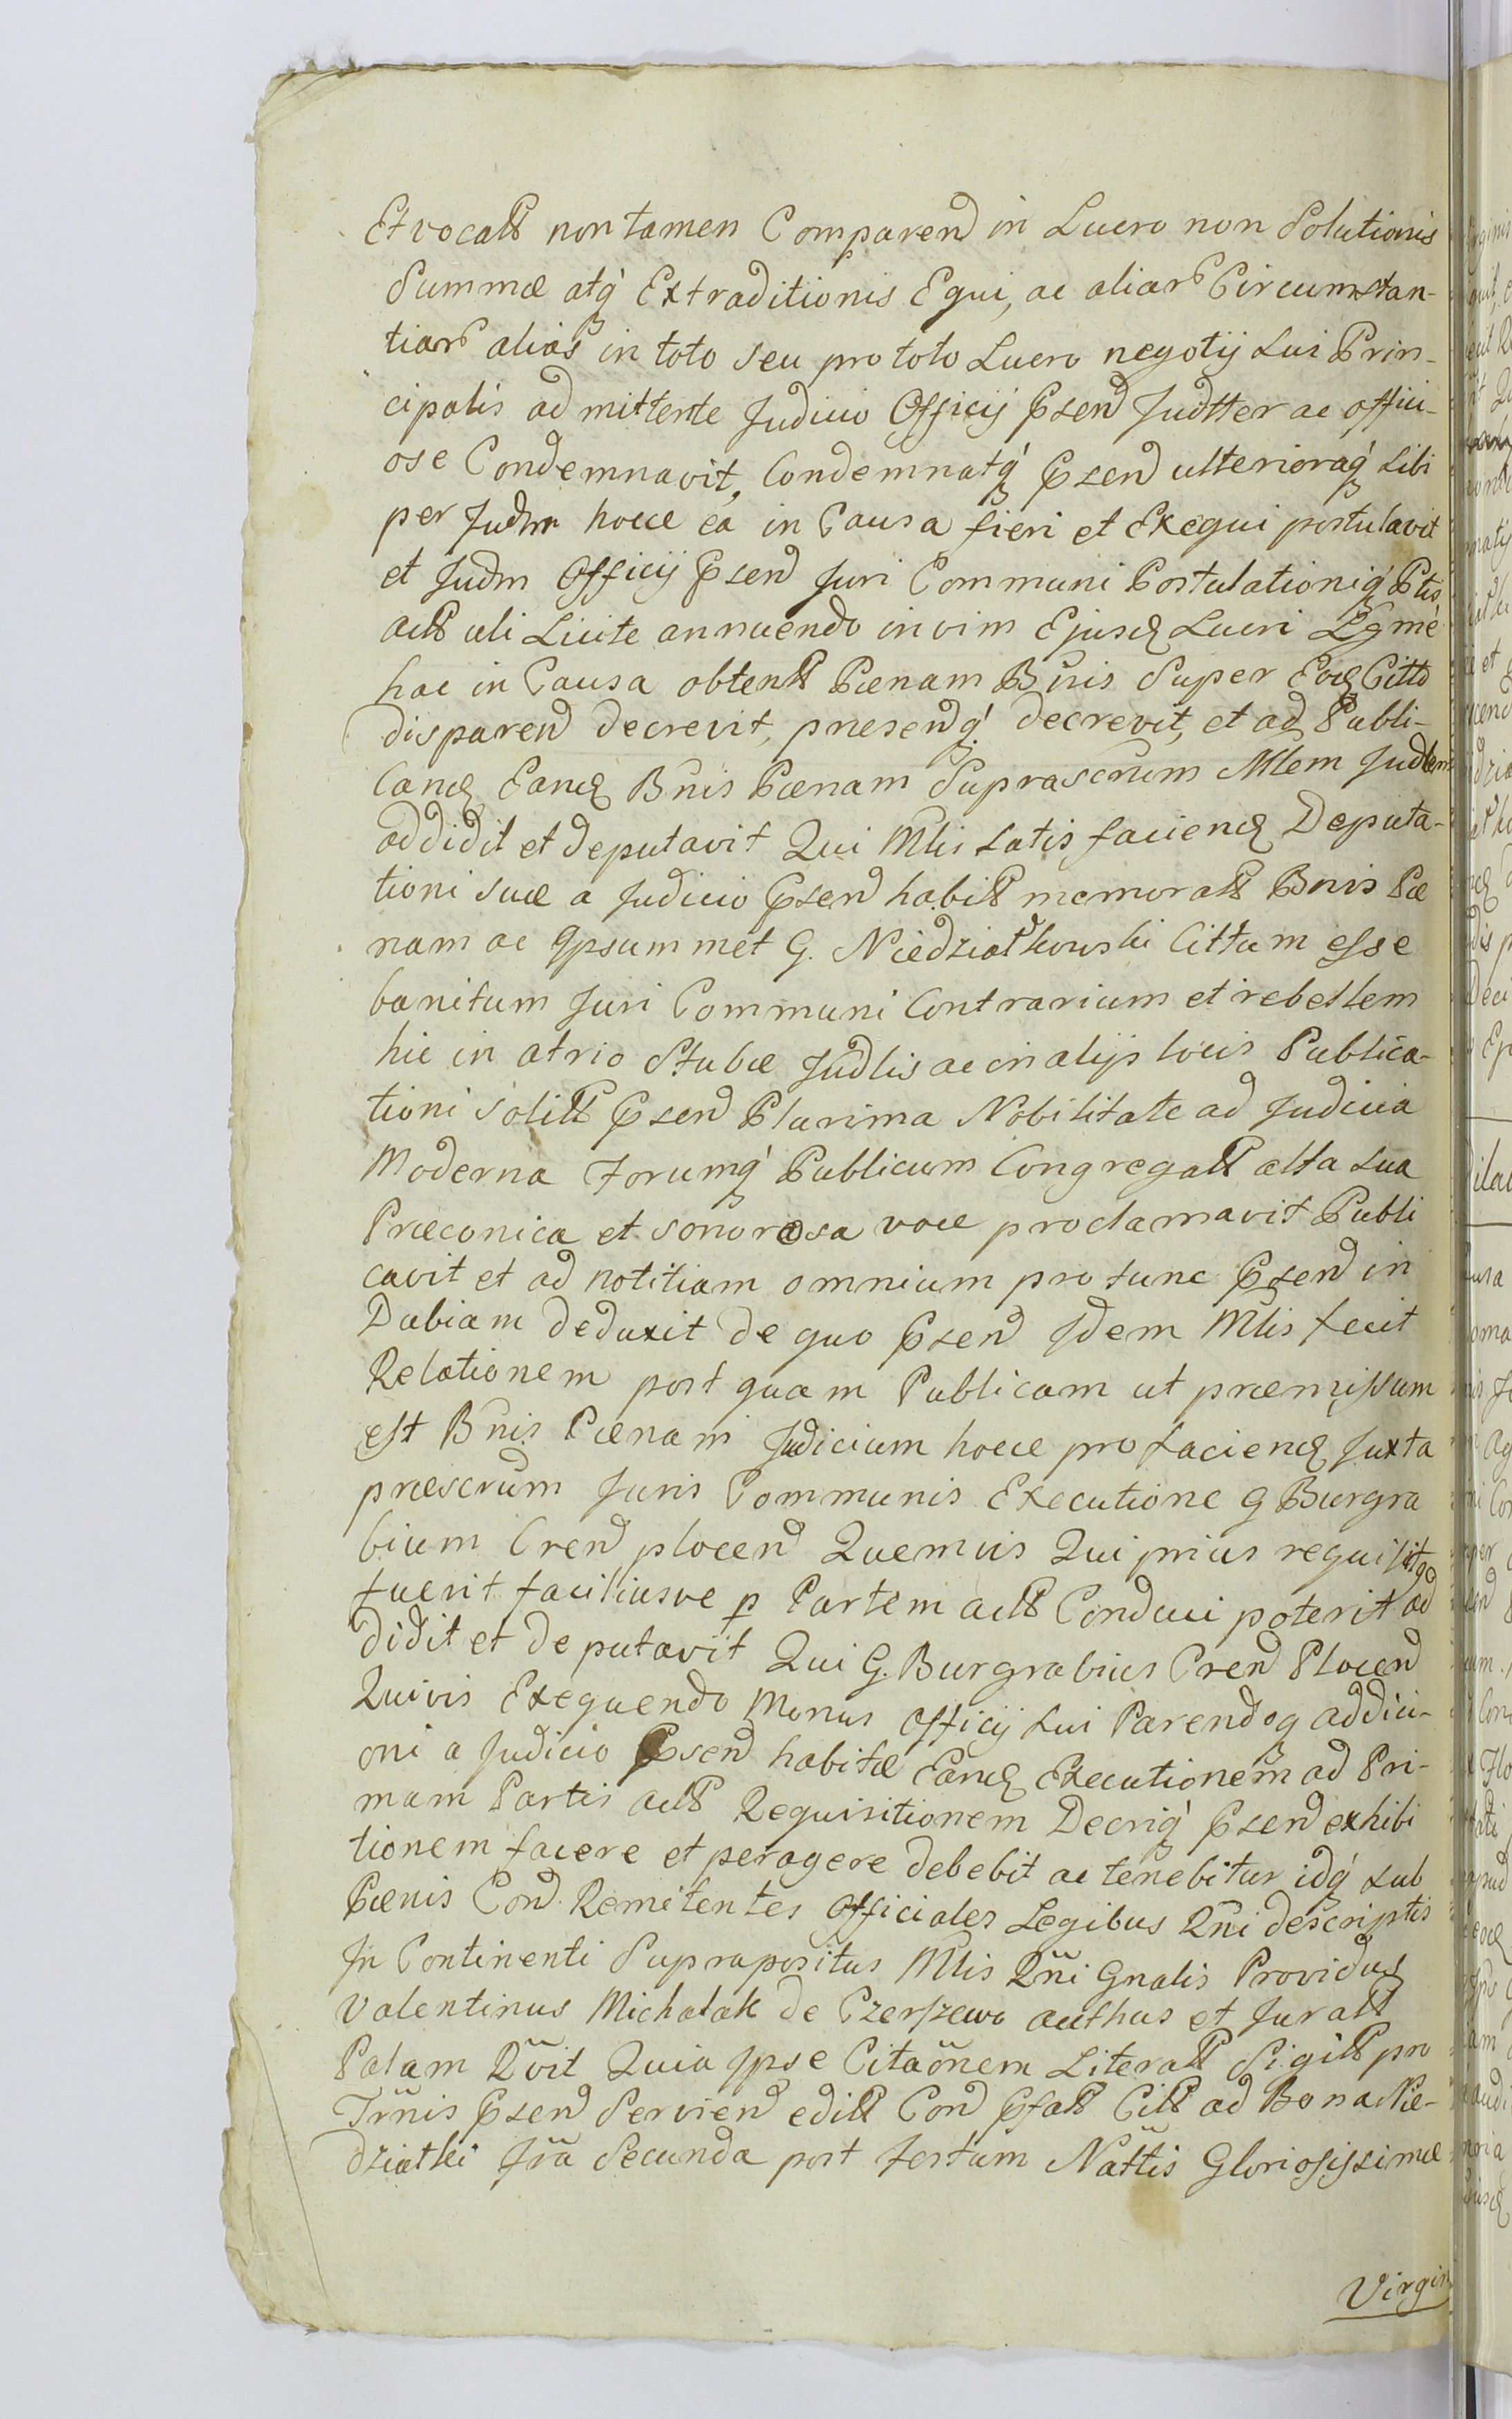 Et vocatt non tamen Comparend in Lucro non Solutionis
Summæ atq́ Extraditionis Equi, ac aliar Circumstan-
tiar alias in toto seu pro toto Lucro negotij sui Prin-
cipalis admittente Judicio Officij Psend Judtter ac offici-
ose Condemnavit, Condemnatq́ Psend ulterioraq́ sibi
per Judm hocce ea in Causa fieri et Exequi postulavit
et Judm Officij Psend Juri Communi Postulationiq́ Ptis
actt uti Licite annuendo in vim Ejusd Lucri
hac in Causa obtentt Pænam Bnis Super Eod Citto
disparend decrevit, presendq́ decrevit, et ad Publi-
cand Eand Bnis Pænam Suprascrum Mlem Judlem
addidit et deputavit Qui Mlis satis faciend Deputa-
tioni suæ a Judicio Psend habitt memoratt Bnis Pæ
nam ac Ipsummet G. Niedziałkowski Cittum esse
banitum Juri Communi Contrarium et rebellem
hic in atrio Stubæ Judlis ac in alijs locis Publica-
tioni solitt Psend Plurima Nobilitate ad Judicia
Moderna Forumq́ Publicum Congregatt alta sua
Præconica et sonorosa voce proclamavit Publi
cavit et ad notitiam omnium pro tunc Psend in
Dubiam deduxit de quo Psend Idem Mlis fecit
Relationem post quam Publicam ut præmissum
est Bnis Pænam Judicium hocce pro faciend Juxta
præscrum Juris Communis Executione G Burgra
bium Crend plocend Quemvis Qui prius requisit
fuerit faciliusve p Partem actt Conduci poterit ad
didit et deputavit Qui G. Burgrabius Crend Plocend
Quivis Exequendo Munus officij sui Parendoq addici-
oni a Judicio Psend habitæ Eand Executionem ad Pri-
mam Partis actt Requisitionem Decriq́ Psend exhibi
tionem facere et peragere debebit ac tenebitur idq́ sub
Pænis Cond Remitentes Officiales Legibus Rni descriptis
In Continenti Suprapositus Mlis Rni Gnalis Providus
Valentinus Michalak de Czerszewo authus et Juratt
Palam Rvit Quia Ipse Citaonem Literatt Sigitt pro
Trnis Psend Serviend editt Cond Pfatt Citt ad Bona Nie-
działki Fra Secunda post festum Nattis Gloriosissimæ
Virgin